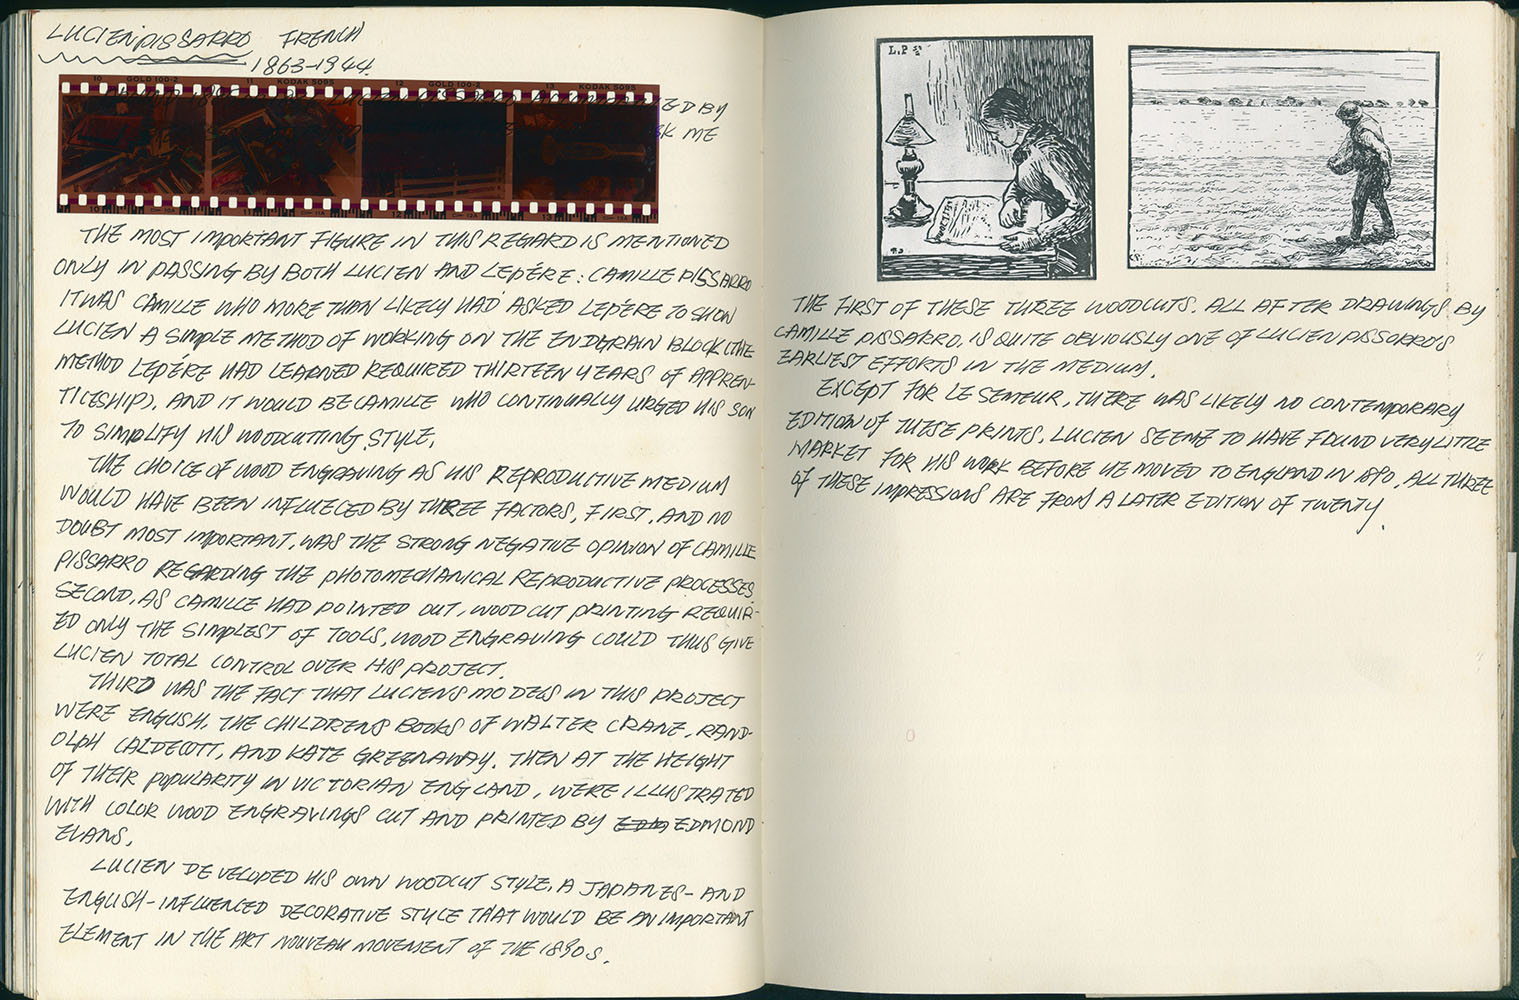 LUCIEN PISSARRO FRENCH
1863-1944.
10 GOLD 100-2 11 KODAK 5095 12 GOLD 100-2 13 KODAK 5095
ED BY
ME
10 10A 11 11A 12 12A 13 13A
THE MOST IMPORTANT FIGURE IN THIS REGARD IS MENTIONED
ONLY IN PASSING BY BOTH LUCIEN AND LEPÉRE: CAMILLE PISSARRO
IT WAS CAMILLE WHO MORE THAN LIKELY HAD ASKED LEPÉRE TO SHOW
LUCIEN A SIMPLE METHOD OF WORKING ON THE ENDGRAIN BLOCK (THE
METHOD LEPÉRE HAD LEARNED REQUIRED THIRTEEN YEARS OF APPREN-
TICESHIP). AND IT WOULD BE CAMILLE WHO CONTINUALLY URGED HIS SON
TO SIMPLIFY HIS WOODCUTTING STYLE.
THE CHOICE OF WOOD ENGRAVING AS HIS REPRODUCTIVE MEDIUM
WOULD HAVE BEEN INFLUECED BY THREE FACTORS, FIRST, AND NO
DOUBT MOST IMPORTANT, WAS THE STRONG NEGATIVE OPINION OF CAMILLE
PISSARRO REGARDING THE PHOTOMECHANICAL REPRODUCTIVE PROCESSES.
SECOND, AS CAMILLE HAD POINTED OUT, WOODCUT PRINTING REQUIR-
ED ONLY THE SIMPLEST OF TOOLS, WOOD ENGRAVING COULD THUS GIVE
LUCIEN TOTAL CONTROL OVER HIS PROJECT.
THIRD WAS THE FACT THAT LUCIENS MODELS IN THIS PROJECT
WERE ENGLISH. THE CHILDRENS BOOKS OF WALTER CRANE, RAND-
OLPH CALDECOTT, AND KATE GREENAWAY. THEN AT THE HEIGHT
OF THEIR POPULARITY IN VICTORIAN ENGLAND, WERE ILLUSTRATED
WITH COLOR WOOD ENGRAVINGS CUT AND PRINTED BY EDMOND
EVANS.
LUCIEN DEVELOPED HIS OWN WOODCUT STYLE, A JAPANES- AND
ENGLISH-INFLUENCED DECORATIVE STYLE THAT WOULD BE AN IMPORTANT
ELEMENT IN THE ART NOUVEAU MOVEMENT OF THE 1890S.
L.P
THE FIRST OF THESE THREE WOODCUTS. ALL AFTER DRAWINGS BY
CAMILLE PISSARRO, IS QUITE OBVIOUSLY ONE OF LUCIEN PISSORRO'S
EARLIEST EFFORTS IN THE MEDIUM.
EXCEPT FOR LE SEMEUR, THERE WAS LIKELY NO CONTEMPORARY
EDITION OF THESE PRINTS. LUCIEN SEEMS TO HAVE FOUND VERY LITTLE
MARKET FOR HIS WORK BEFORE HE MOVED TO ENGLAND IN 1890. ALL THREE
OF THESE IMPRESSIONS ARE FROM A LATER EDITION OF TWENTY.